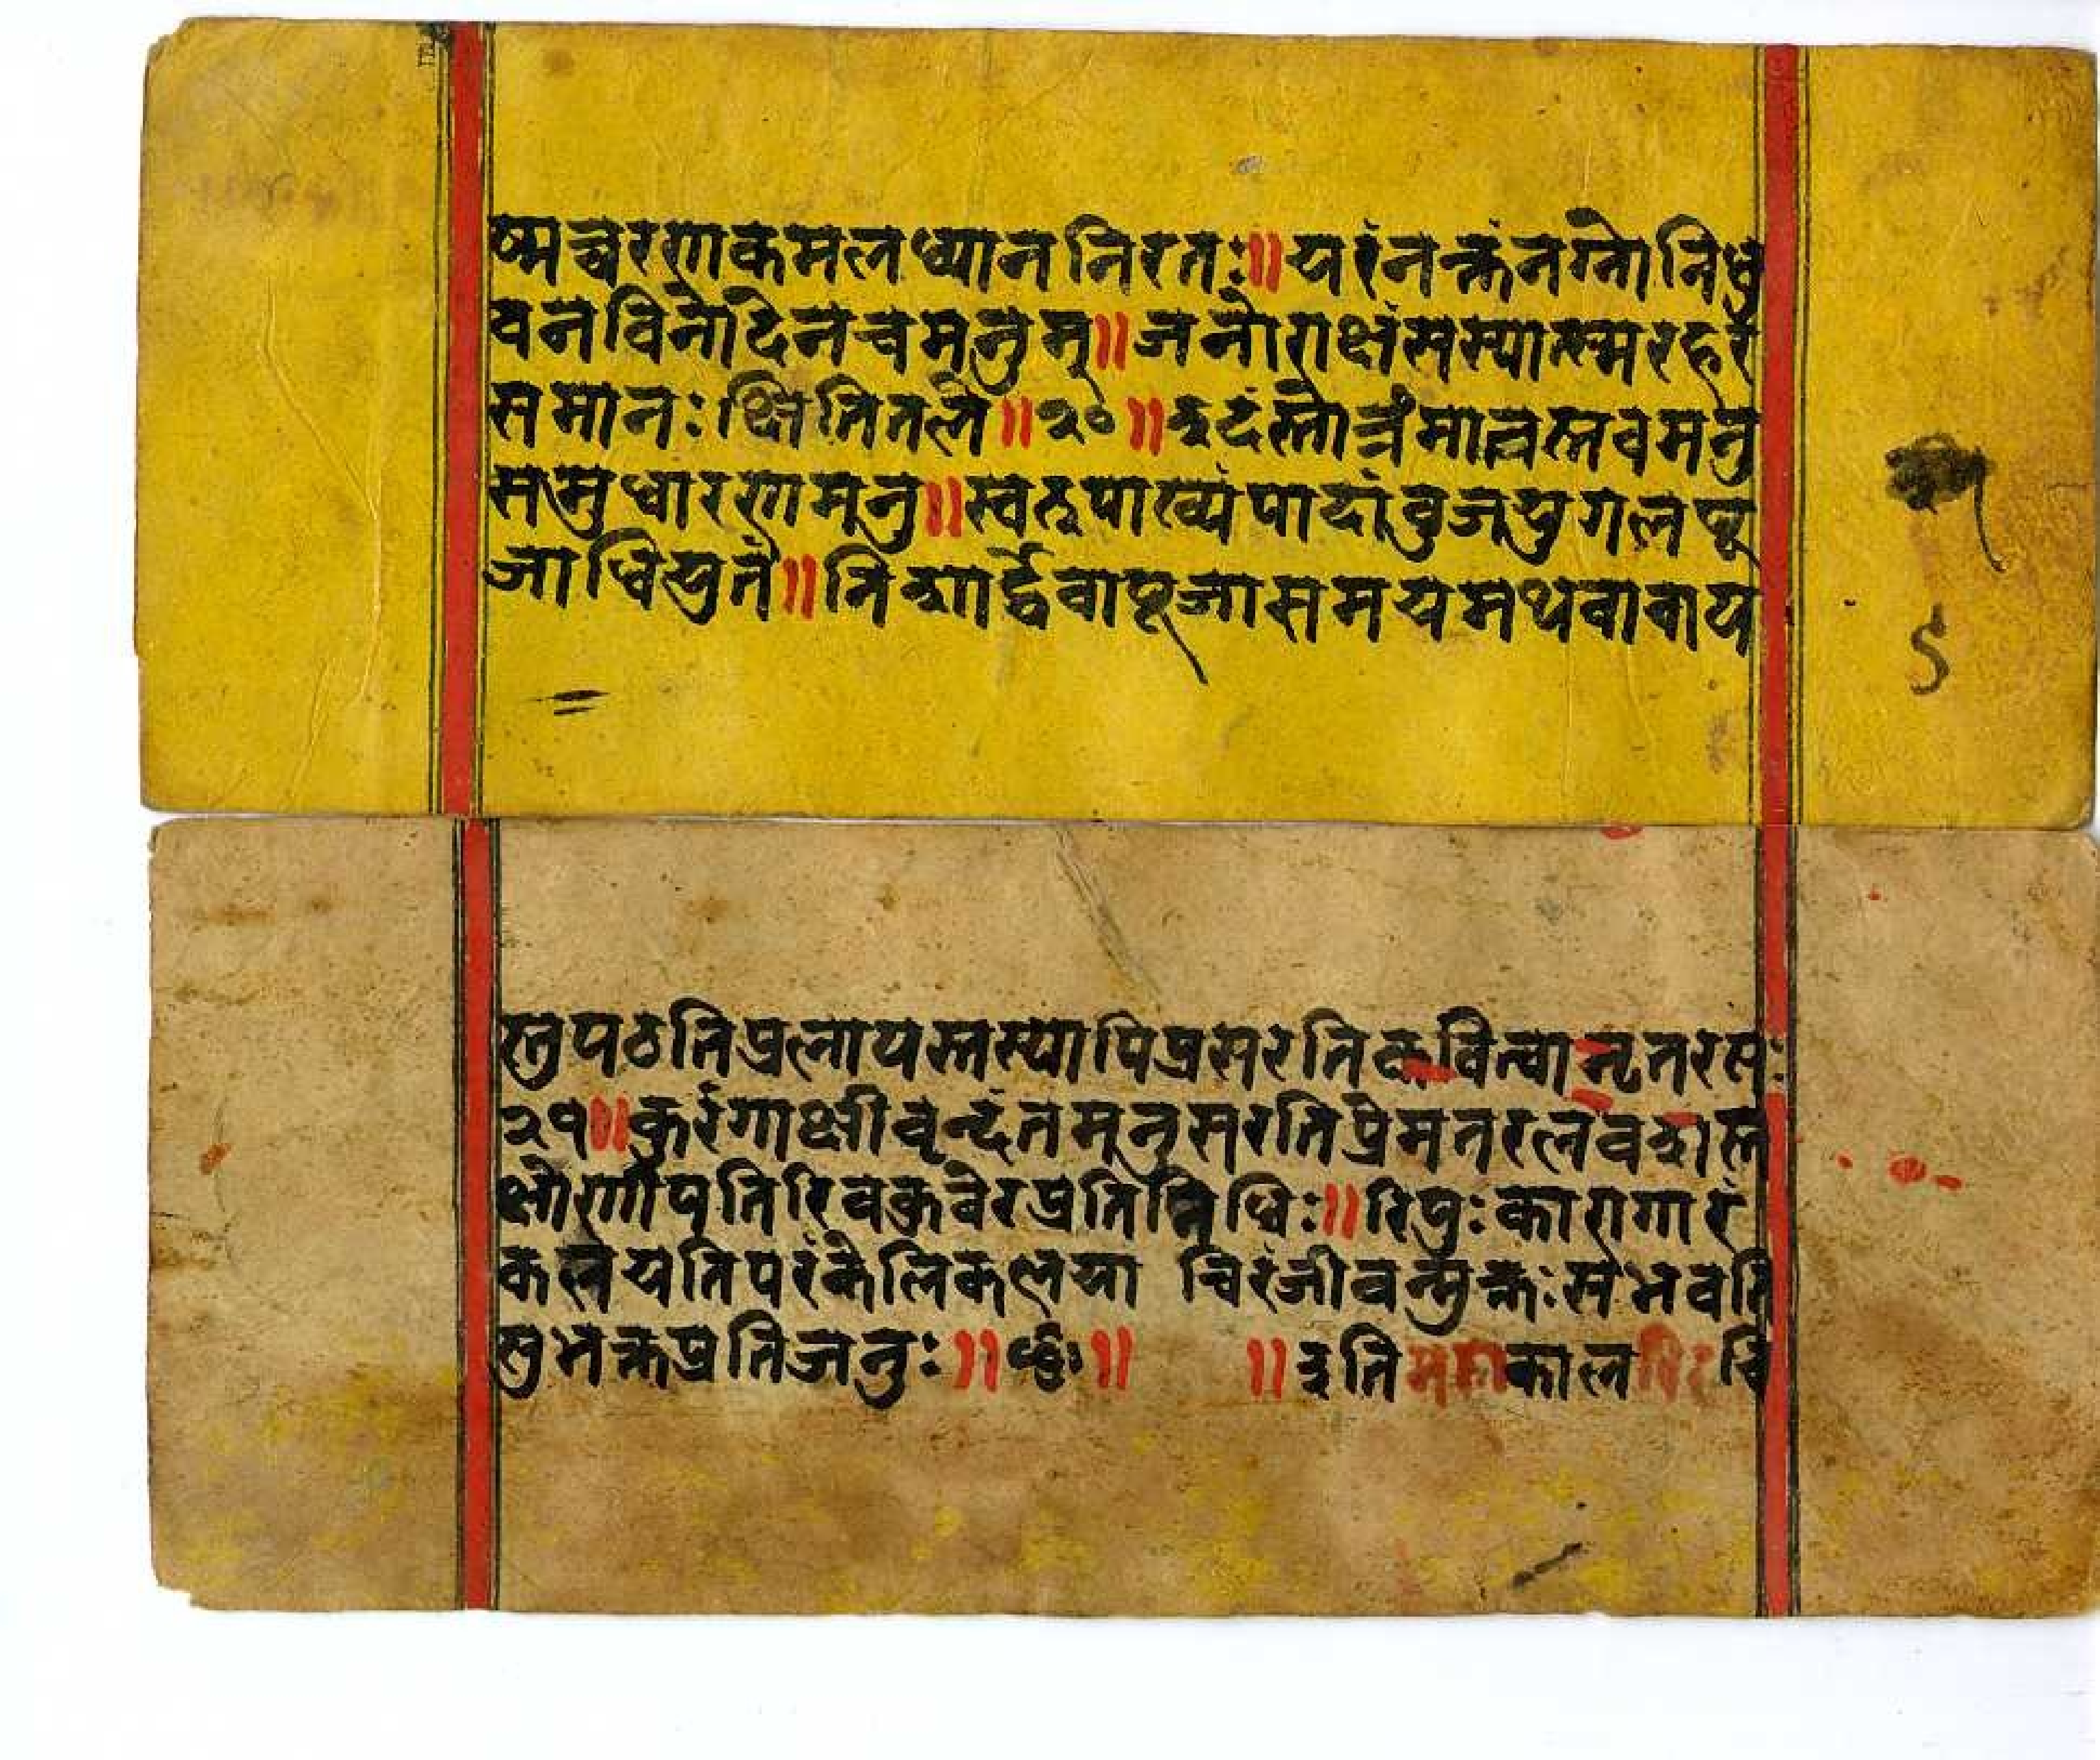 ष्मच्चरणकमलध्याननिरतः॥यरंनक्तंनग्नोनिधु
वनविनोदेनचमनुम्॥जनोराक्षंसस्यात्स्मरहरं
समानःक्षितितले॥२०॥इदंस्तोत्रंमातस्तवमनु
समुधारणमनु॥स्वरूपाख्यंपादांवुजयुगलपू
जाधियुतं॥निशार्द्धेवापूजासमयमथवावाय
स्तुपठतिप्रलापस्तस्यापिप्रसरतिकवित्वामृतरसः
२१॥कुरंगाक्षीवृन्दंतमनुसरतिप्रेमतरलंवशस्त
क्षोणीपतिरिवकुवेरप्रतिनिधिः॥रिपुःकारागारं
कलयतिपरंकेलिकलया चिरंजीवन्मुक्तःसंभवति
सुभक्तप्रतिजनुः॥ ॥ ॥इतिमहाकाल वि